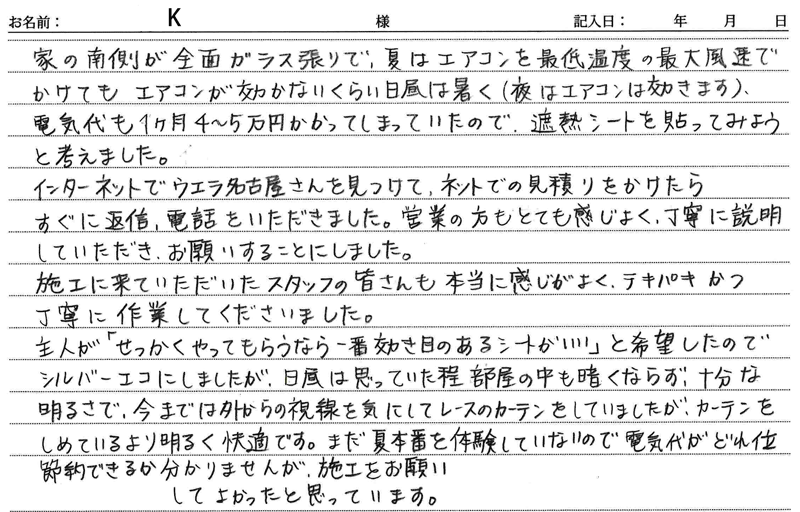 お名前： K 様 記入日： 年 月 日
家の南側が全面ガラス張りで、夏はエアコンを最低温度の最大風速で
かけても エアコンが効かないくらい日昼は暑く(夜はエアコンは効きます)、
電気代も1ヶ月4～5万円かかってしまっていたので、遮熱シートを貼ってみよう
と考えました。
インターネットでウエラ名古屋さんを見つけて、ネットでの見積りをかけたら
すぐに返信、電話をいただきました。営業の方もとても感じよく、丁寧に説明
していただき、お願いすることにしました。
施工に来ていただいたスタッフの皆さんも本当に感じがよく、テキパキかつ
丁寧に作業してくださいました。
主人が「せっかくやってもらうなら一番効き目のあるシートがいい」と希望したので
シルバーエコにしましたが、日昼は思っていた程部屋の中も暗くならず、十分な
明るさで、今までは外からの視線を気にしてレースのカーテンをしていましたが、カーテンを
しめているより明るく快適です。まだ夏本番を体験していないので電気代がどれ位
節約できるか分かりませんが、施工をお願い
してよかったと思っています。